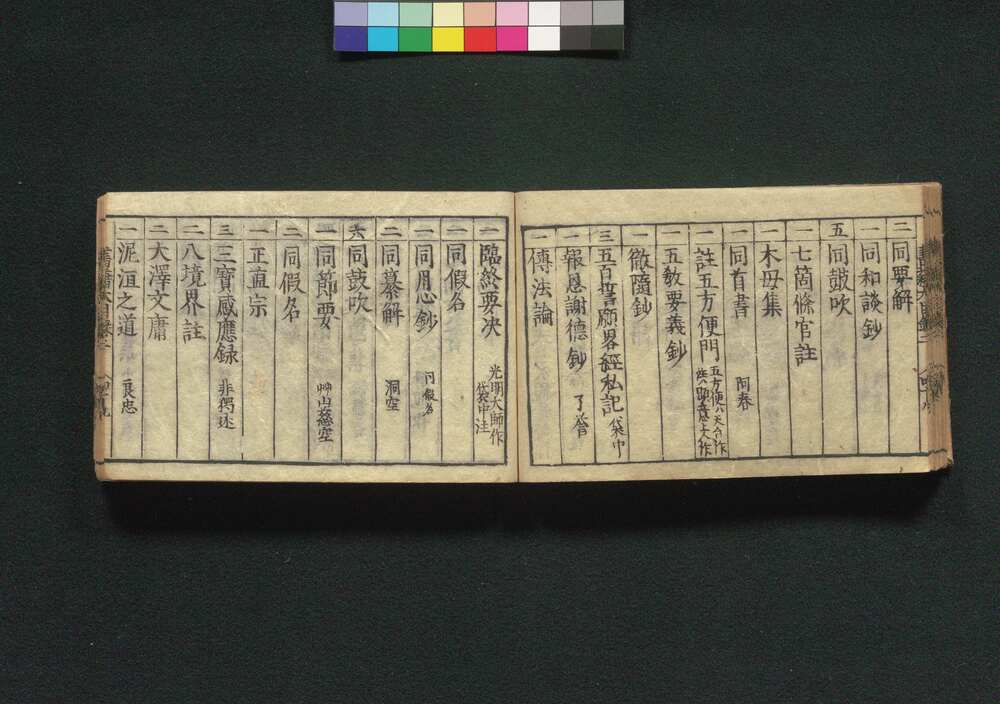 二 同要解
一 同和談鈔
五 同鼓吹
一 七箇條官註
一 木母集
一 同首書 阿春
一 註五方便門
一 五教要義鈔
一 微隨鈔
三 五百誓願畧經私記 袋中
一 報恩謝德鈔 了誉
一 傳法論
一 臨終要决 光明大師作 袋中注
一 同假名
一 同用心鈔 同假名
二 同纂解 洞空
六 同鼓吹
一 同節要 慈空
二 同假名
一 正直宗
三 三寶感應録 非獨述
二 八境界註
二 大澤文庸
一 泥洹之道 良忠